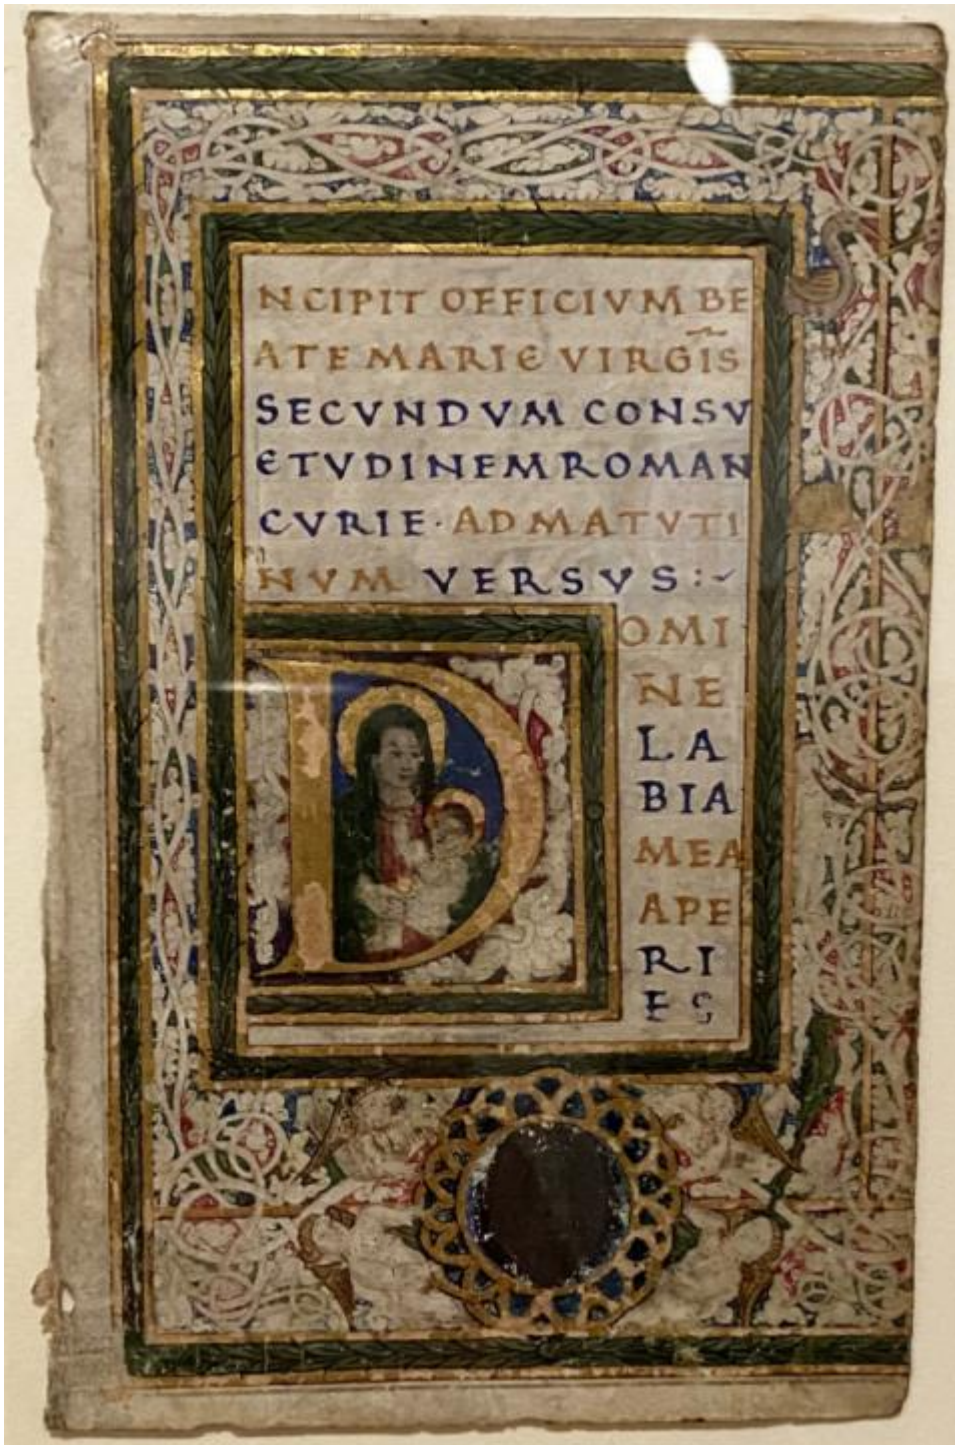 NCIPIT OFFICIVM BE
ATE MARIE VIRGĪS
SECVNDVM CONSV
ETVDINEM ROMAN
CVRIE · AD MATVTI
NVM VERSVS :~
DOMI
NE
LA
BIA
MEA
APE
RI
ES